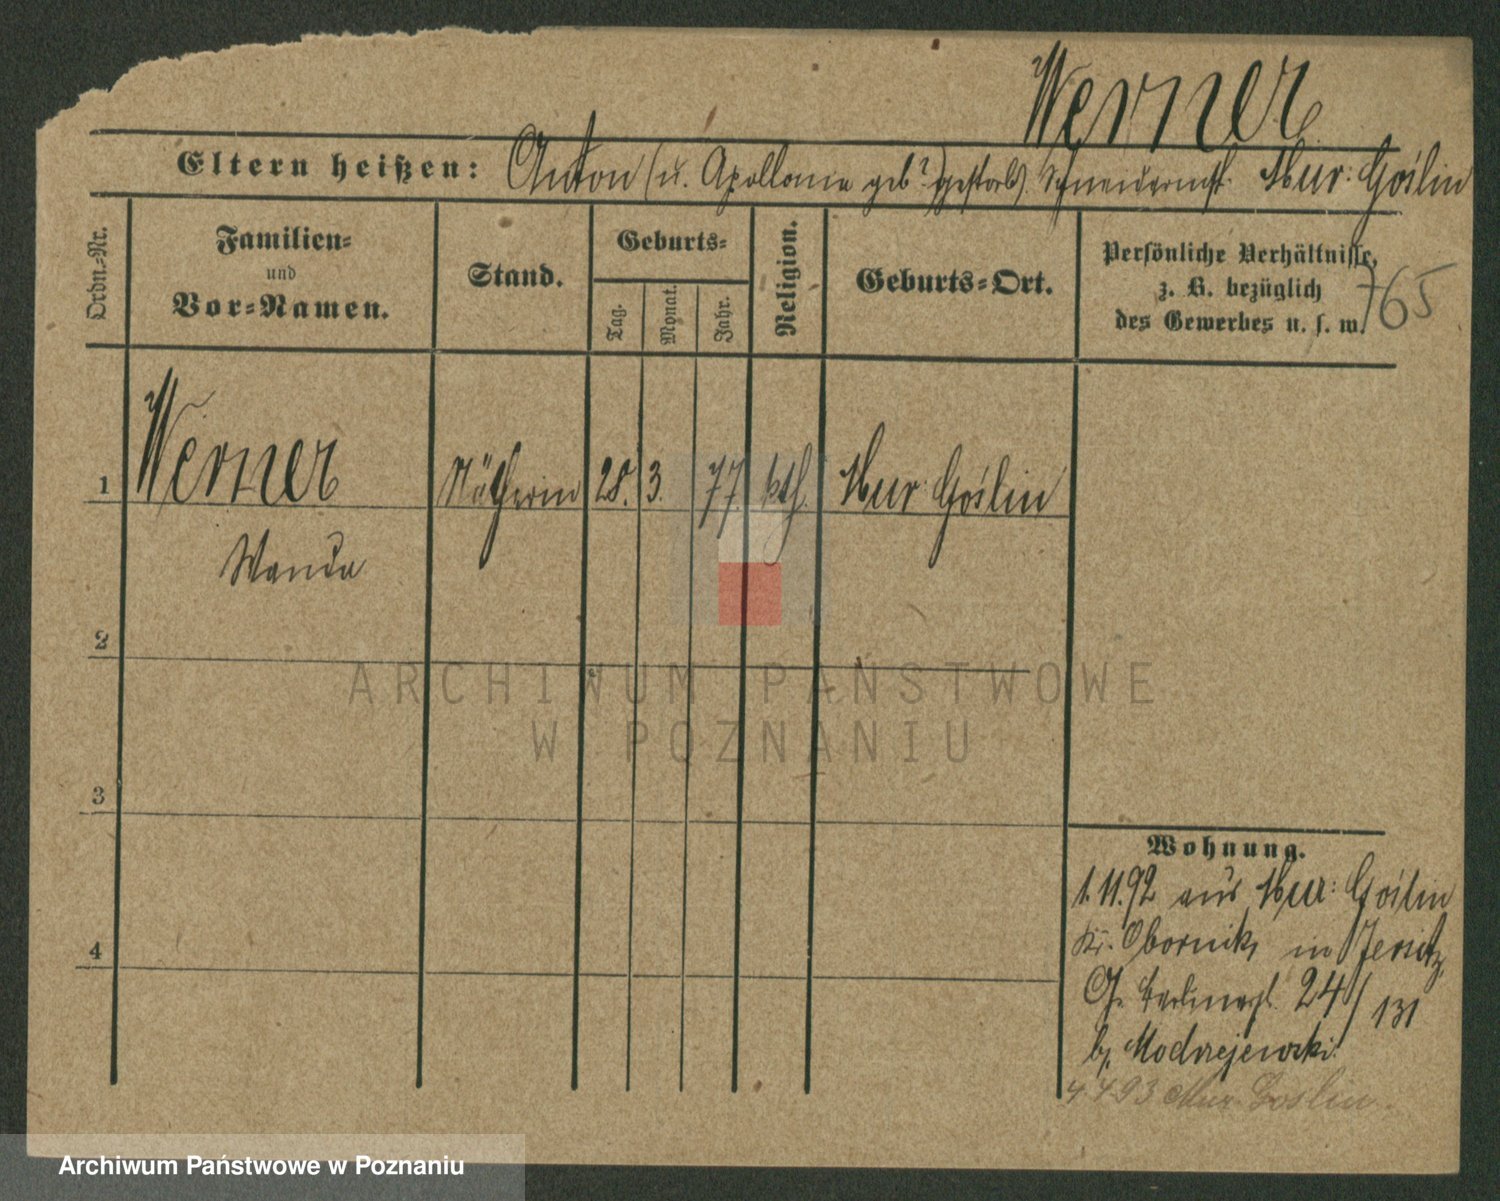 Werner
Eltern heißen: Anton (u. Apollonia geb ? gestorb) Schneidermst. Mur: Goślin
Ordn.-Nr.
Familien-
und
Vor-Namen.
Stand.
Geburts-
Tag.
Monat.
Jahr.
Religion.
Geburts-Ort.
Persönliche Verhältnisse,
z. B. bezüglich
des Gewerbes u. s. w.
765
1 Werner Nätherin 28. 3. 77. kth. Mur: Goślin
Wanda
2
3
4
Wohnung.
1.11.92 aus Mur: Goślin
Kr. Obornik, in Jersitz,
Gr. Berlinerst. 24/131
b. Modrzejewski
4.4.93 Mur. Goslin.
ARCHIWUM PAŃSTWOWE
W POZNANIU
Archiwum Państwowe w Poznaniu